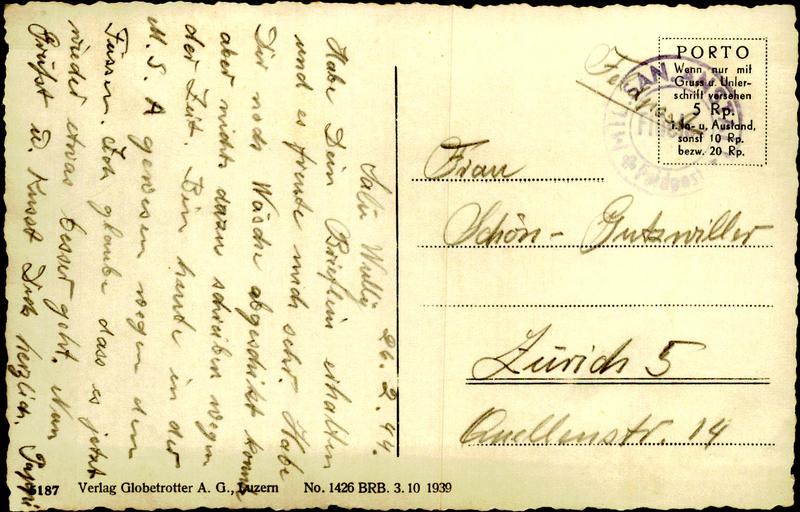 Salü Wully 26.2.44.
Habe Dein Brieflein erhalten
und es freute mich sehr. Habe
Dir noch Wäsche abgeschikt konnte
aber nichts dazu schreiben wegen
der Zeit. Bin heute in der
M.S.A gewesen wegen den
Füssen. Ich glaube dass es jetzt
wieder etwas besser geht. Nun
Grüsst u. Küsst Dich herzlich.
Feldpost
PORTO
Wenn nur mit
Gruss u. Unter-
schrift versehen
5 Rp.
i. In- u. Ausland,
sonst 10 Rp.
bezw. 20 Rp.
Feldpost
Frau
Schön-Gutzwiller
Zürich 5
Quellenstr. 14
5187 Verlag Globetrotter A. G., Luzern No. 1426 BRB. 3. 10 1939